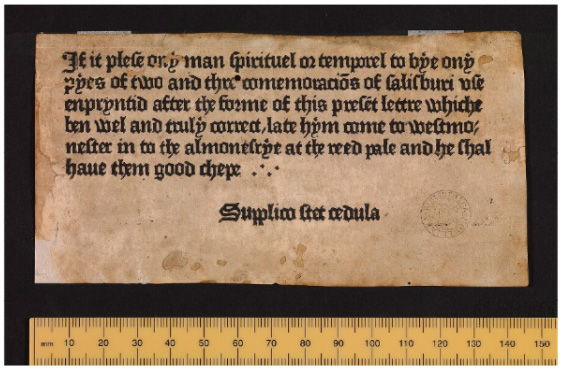 If it plese ony man spirituel or temporel to bye ony
pyes of two and thre comemoraciōs of salisburi vse
enpryntid after the forme of this presēt lettre whiche
ben wel and truly correct, late hym come to westmo-
nester in to the almonesrye at the reed pale and he shal
haue them good chepe .·.
Supplico stet cedula
mm 10 20 30 40 50 60 70 80 90 100 110 120 130 140 150